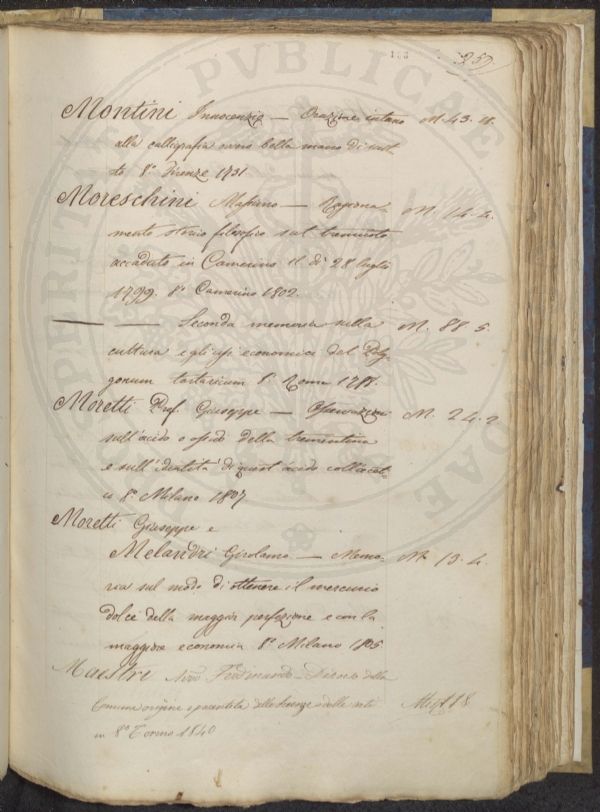 359.
Montini Innocenzio — Orazione intorno M. 43. 11.
alla calligrafia ovvero bella mano di scrit-
to 8° Firenze 1731.
Moreschini Massimo — Ragiona- M. 14. 4.
mento storico filosofico sul tremuoto
accaduto in Camerino il dì 28 luglio
1799. 8° Camerino 1802.
— — Seconda memoria sulla M. 88. 5
cultura e gli usi economici del Poly-
gonum tartaricum 8° Roma
Moretti Prof. Giuseppe — Osservazioni M. 24. 2
sull'acido o ossido della trementina
e sull'identità di quest'acido coll'aceti-
co 8° Milano 1807
Moretti Giuseppe e
Melandri Girolamo — Memo- M. 13. 4.
ria sul modo di ottenere il mercurio
dolce della maggior perfezione e con la
maggiore economia 8° Milano 1805
Maestri Ferdinando della
Comune origine e parentela delle scienze e delle arti
in 8° Torino 1840
PVBLICAE